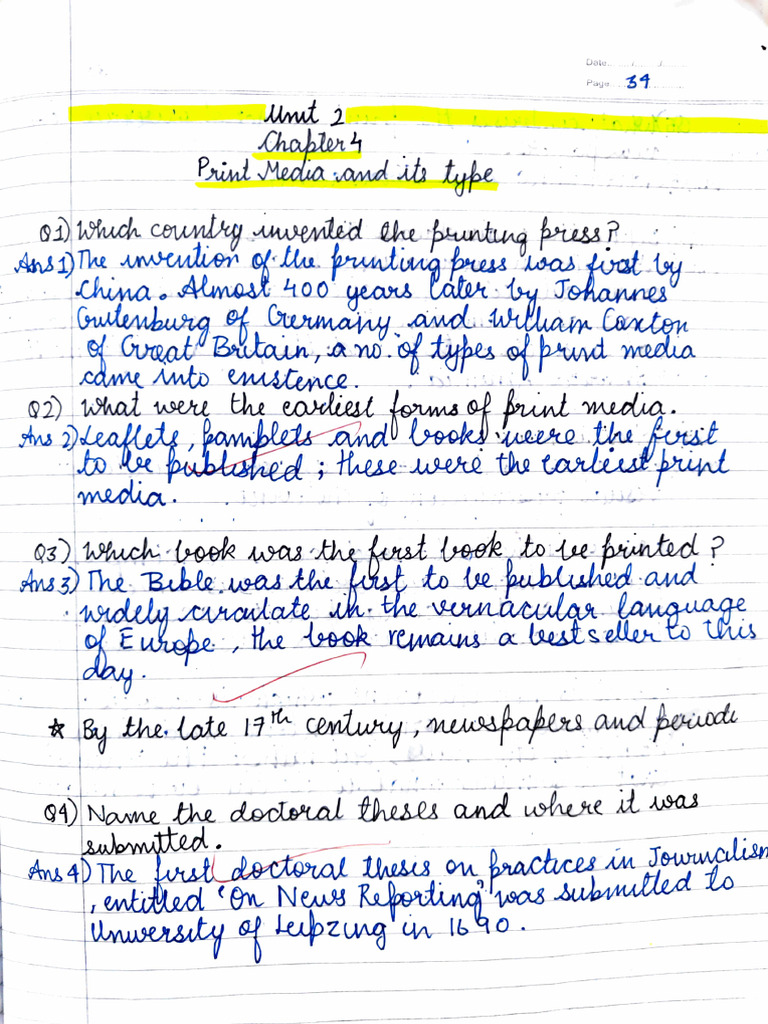 Date...../...../.....
Page... 39
Unit 2
Chapter 4
Print Media and its type
Q1) Which country invented the printing press?
Ans 1) The invention of the printing press was first by
China. Almost 400 years later by Johannes
Gutenburg of Germany and William Caxton
of Great Britain, a no. of types of print media
came into enistence.
Q2) What were the earliest forms of print media.
Ans 2) Leaflets, pamplets and books were the first
to be published ; these were the earliest print
media.
Q3) Which book was the first book to be printed ?
Ans 3) The Bible was the first to be published and
widely circulate in the vernacular language
of Europe, the book remains a best seller to this
day.
☆ By the late 17th century, newspapers and periodi
Q4) Name the doctoral theses and where it was
submitted.
Ans 4) The first doctoral thesis on practices in Journalism
, entitled 'On News Reporting' was submitted to
University of Leipzing in 1690.